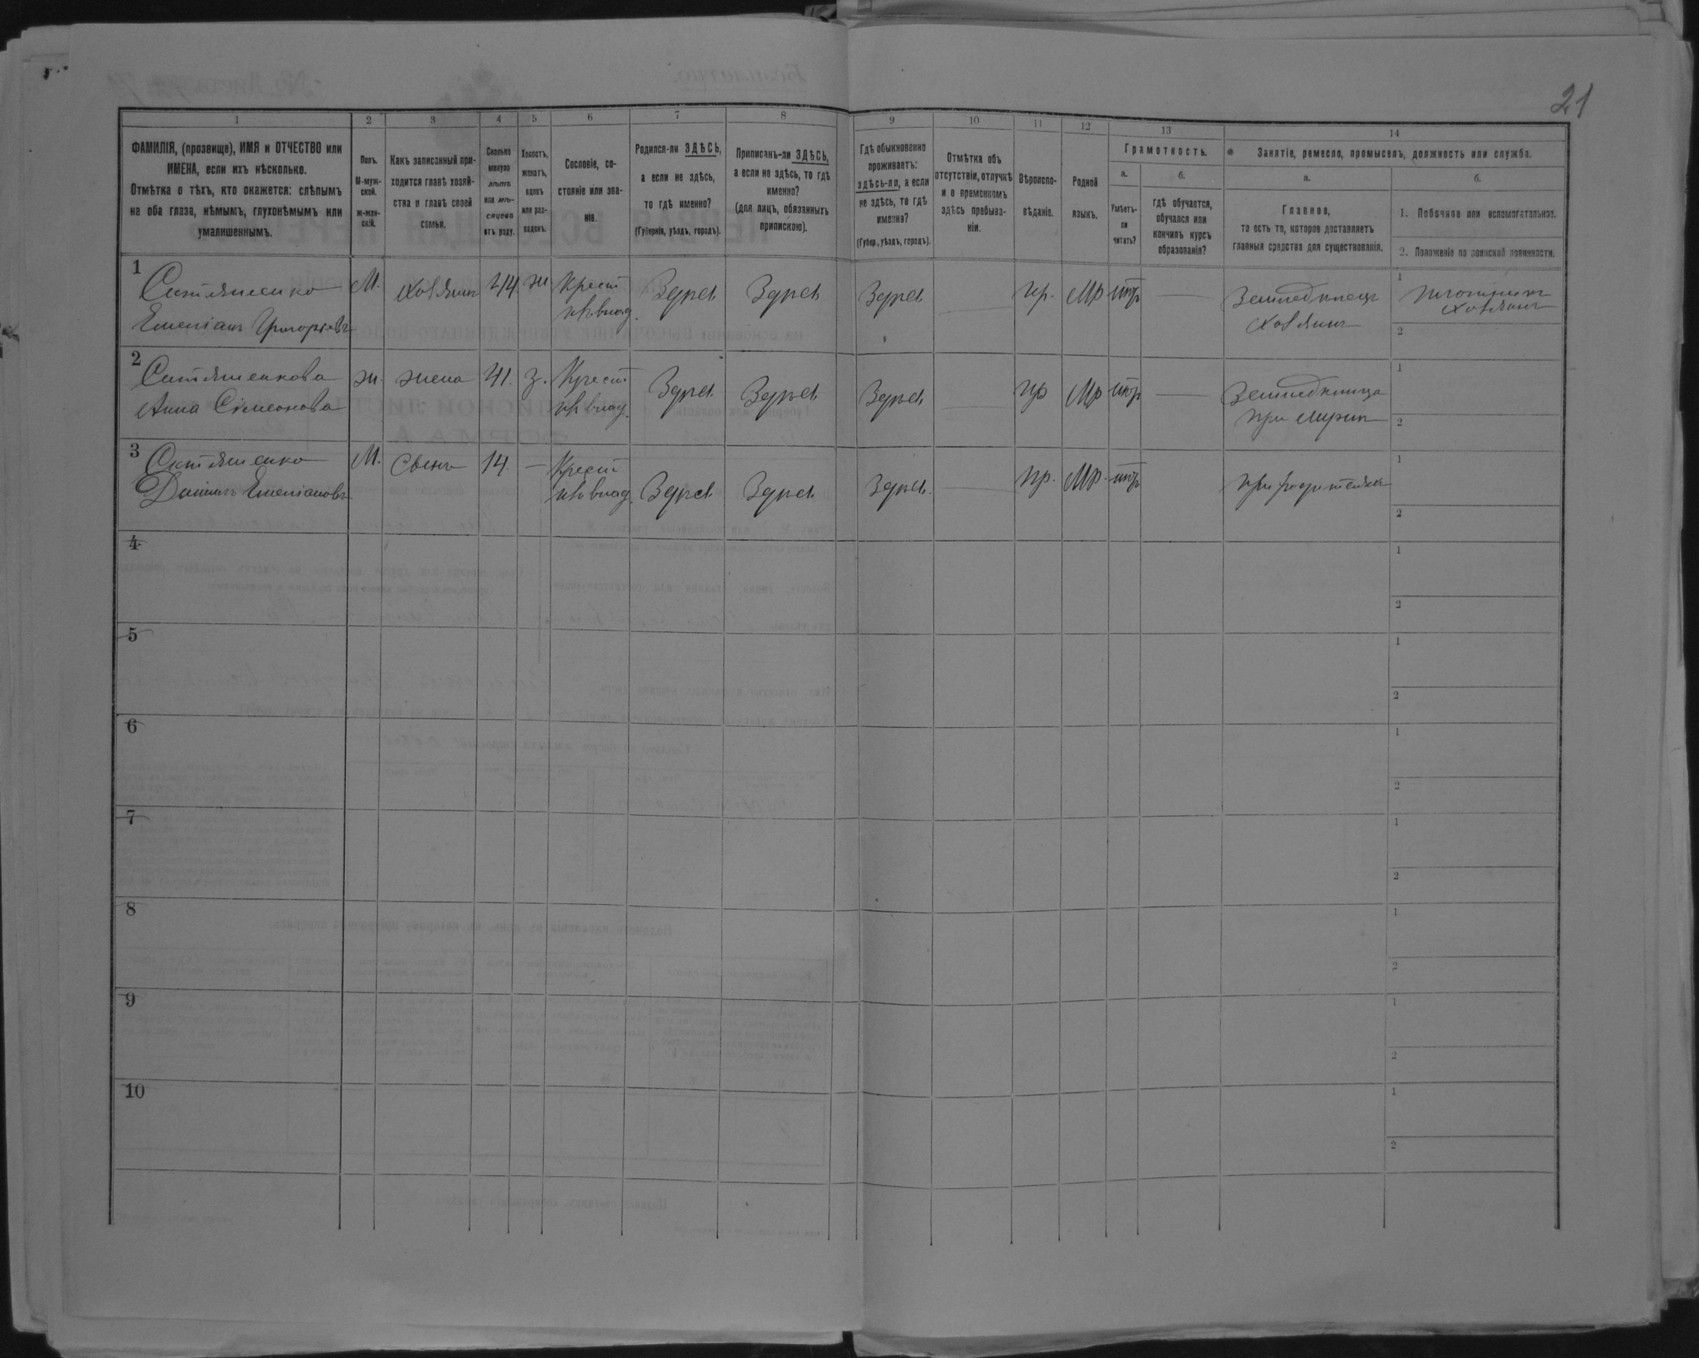 21
1
2
3
4
5
6
7
8
9
10
11
12
13
14
ФАМИЛІЯ, (прозвище), ИМЯ и ОТЧЕСТВО или
ИМЕНА, если ихъ нѣсколько.
Отмѣтка о тѣхъ, кто окажется: слѣпымъ
на оба глаза, нѣмымъ, глухонѣмымъ или
умалишеннымъ.
Полъ.
М-муж-
ской.
ж-жен-
скій.
Какъ записанный при-
ходится главѣ хозяй-
ства и главѣ своей
семьи.
Сколько
минуло
лѣтъ
или мѣ-
сяцевъ
отъ роду.
Холостъ,
женатъ,
вдовъ
или раз-
веденъ.
Сословіе, со-
стояніе или зва-
ніе.
Родился-ли ЗДѢСЬ,
а если не здѣсь,
то гдѣ именно?
(Губернія, уѣздъ, городъ).
Приписанъ-ли ЗДѢСЬ,
а если не здѣсь, то гдѣ
именно?
(для лицъ, обязанныхъ
припискою).
Гдѣ обыкновенно
проживаетъ:
здѣсь-ли, а если
не здѣсь, то гдѣ
именно?
(Губер., уѣздъ, городъ).
Отмѣтка объ
отсутствіи, отлучкѣ
и о временномъ
здѣсь пребыва-
ніи.
Вѣроиспо-
вѣданіе.
Родной
языкъ.
Грамотность.
а.
Умѣетъ-
ли
читать?
б.
гдѣ обучается,
обучался или
кончилъ курсъ
образованія?
Занятіе, ремесло, промыселъ, должность или служба.
а.
Главное,
то есть то, которое доставляетъ
главныя средства для существованія.
б.
1. Побочное или вспомогательное.
2. Положеніе по воинской повинности.
1
М. Хозяинъ 44 ж Крест Здѣсь Здѣсь Здѣсь пр. Мр нѣтъ Земледѣлецъ
Емельянъ Григорьевъ Хозяинъ
1 Хозяинъ
2
2
ж. жена 41. з. Крест Здѣсь Здѣсь Здѣсь пр Мр нѣтъ
Анна Симеонова при мужѣ
1
2
3
М. Сынъ 14. Крест Здѣсь Здѣсь Здѣсь. пр. Мр. нѣтъ
Емельяновъ
1
2
4
1
2
5
1
2
6
1
2
7
1
2
8
1
2
9
1
2
10
1
2